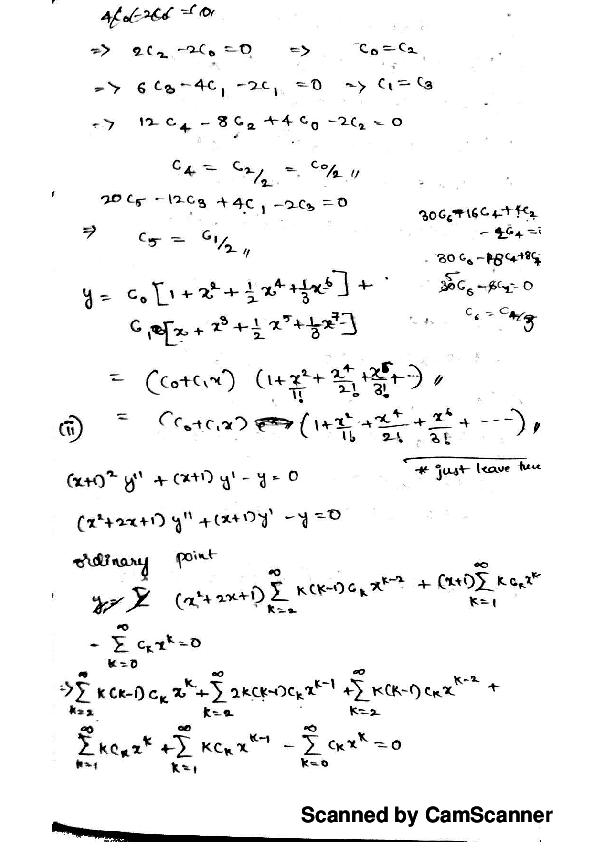 => 2C₂ - 2C₀ = 0 => C₀ = C₂
=> 6C₃ - 4C₁ - 2C₁ = 0 => C₁ = C₃
=> 12C₄ - 8C₂ + 4C₀ - 2C₂ = 0
C₄ = C₂/2 = C₀/2 ,,
20C₅ - 12C₃ + 4C₁ - 2C₃ = 0
=> C₅ = C₁/2 ,,
30C₆ - 16C₄ + 4C₂
y = C₀ [1 + x² + 1/2 x⁴ + 1/3 x⁶] +
C₁ [x + x³ + 1/2 x⁵ + 1/3 x⁷]
= (C₀+C₁x) (1 + x²/1! + x⁴/2! + x⁶/3! + --) ,,
(ii) = (C₀+C₁x) (1 + x²/1! + x⁴/2! + x⁶/3! + ---) ,,
* just leave here
(x+1)² y'' + (x+1) y' - y = 0
(x²+2x+1) y'' + (x+1)y' - y = 0
ordinary point
(x²+2x+1) ∑_{k=2}^{∞} k(k-1)Cₖ x^{k-2} + (x+1) ∑_{k=1}^{∞} k Cₖ x^{k-
- ∑_{k=0}^{∞} Cₖ x^k = 0
=> ∑_{k=2}^{∞} k(k-1) Cₖ x^k + ∑_{k=2}^{∞} 2k(k-1)Cₖ x^{k-1} + ∑_{k=2}^{∞} k(k-1) Cₖ x^{k-2} +
∑_{k=1}^{∞} k Cₖ x^k + ∑_{k=1}^{∞} k Cₖ x^{k-1} - ∑_{k=0}^{∞} Cₖ x^k = 0
Scanned by CamScanner